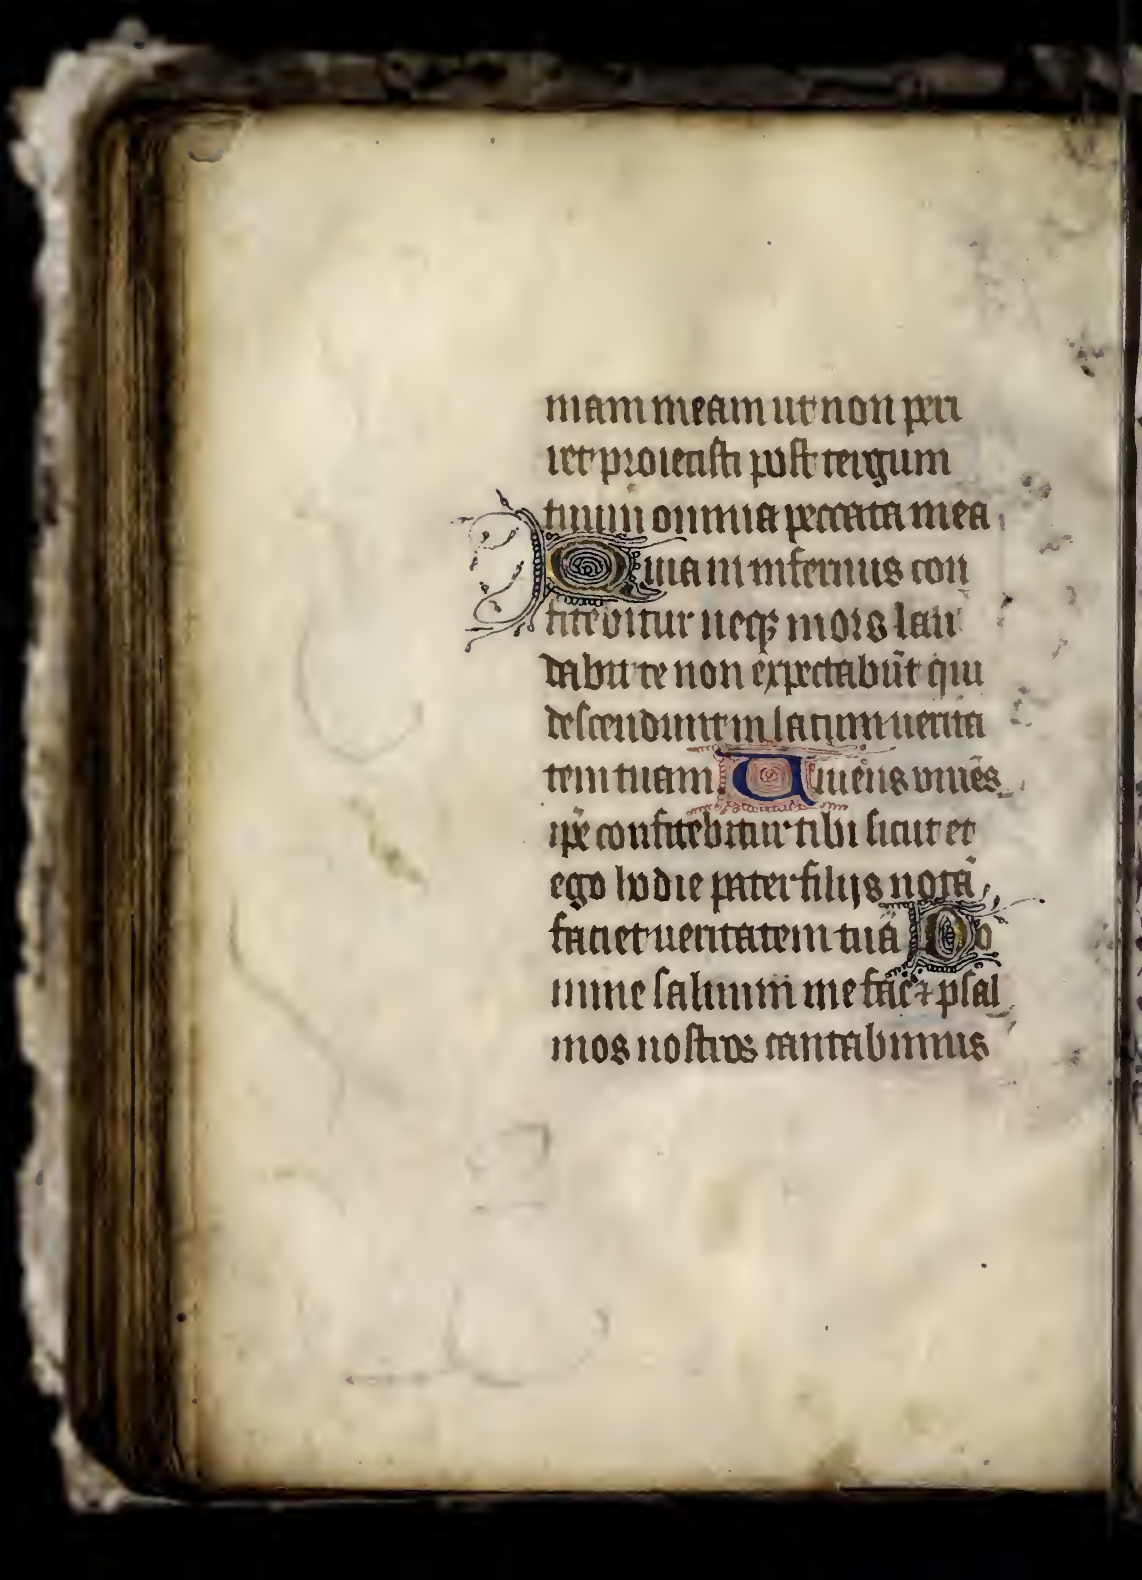 mam meam ut non peri
ret proiecisti post tergum
tuum omnia peccata mea
Quia ni infernus con
fitebitur neqꝫ mors lau
dabit te non expectabūt qui
descendunt in lacum uerita
tem tuam Viuēns viuēs
ipē confitebitur tibi sicut et
ego hodie pater filijs notā
faciet ueritatem tuā Do
mine saluum me fac ⁊ psal
mos nostros cantabimus